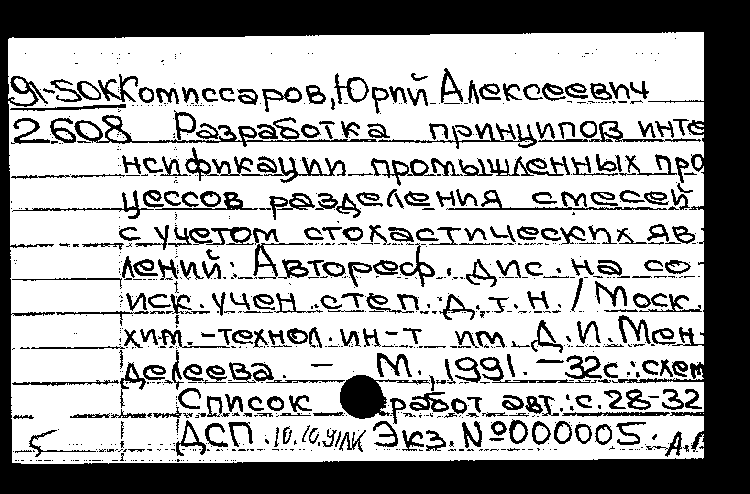 91-50К Комиссаров, Юрий Алексеевич
2608 Разработка принципов инте
нсификации промышленных про
цессов разделения смесей
с учетом стохастических яв-
лений: Автореф. дис. на со-
иск. учен. степ. д.т.н. / Моск.
хим.-технол. ин-т им. Д.И. Мен-
делеева. — М., 1991. — 32с.: схем
Список работ авт.: с.28-32
5 ДСП. 10.10.91 Экз. №000005.